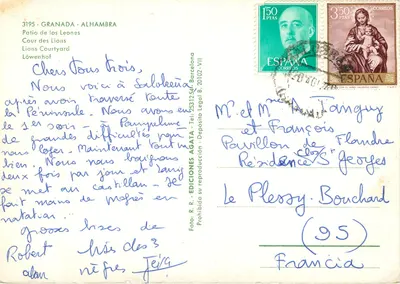 3195 - GRANADA - ALHAMBRA
Patio de los Leones
Cour des Lions
Lions Courtyard
Löwenhof
Chers Tous trois,
Nous voici à
après avoir traversé toute
la Péninsule. Nous avons eu
le 1er soir - Pampelune
de grandes difficultés pour
nous loger. Maintenant tout va
bien. Nous nous baignons
deux fois par jour et
se met au castillan. Je
fait moins de progrès en
natation.
grosses bises de
Robert
très des 3
alan
nègres
Foto: R. R. - EDICIONES AGATA - Tel. 2531234 Barcelona
Prohibida su reproducción - Depósito Legal B. 20102-VII
1,50
PTAS
ESPAÑA
CORREOS
3,50 PTAS
ESPAÑA
CORREOS
M. et Mme Tanguy
et François
Pavillon de Flandre
Résidence Clos St Georges
Le Plessy-Bouchard
(95)
Francia